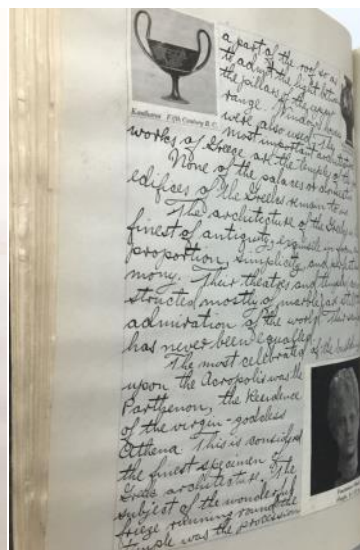 a part of the roof so as
to admit the light between
the pillars of the upper
range. Windows however
were also used. The
most important architectural
works of Greece are the temples of the
None of the palaces or domestic
edifices of the Greeks remain to us
The architecture of the Greeks is
finest of antiquity, exquisite in form
proportion, simplicity, and
mony. Their theatres and temples
structed mostly of marble, are still
admiration of the world. Their
has never been equalled.
The most celebrated of the buildings
upon the Acropolis was the
Parthenon, the Residence
of the virgin-goddess
Athena. This is considered
the finest specimen of
Greek architecture. The
subject of the wonderful
frieze running round the
Temple was the procession
Kantharos Fifth Century B.C.